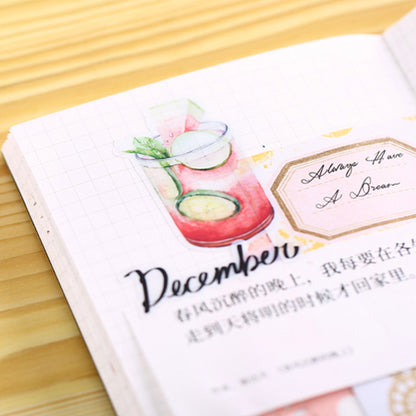 Always Have
A Dream
December
春风沉醉的晚上，我每要在各
走到天将明的时候才回家里